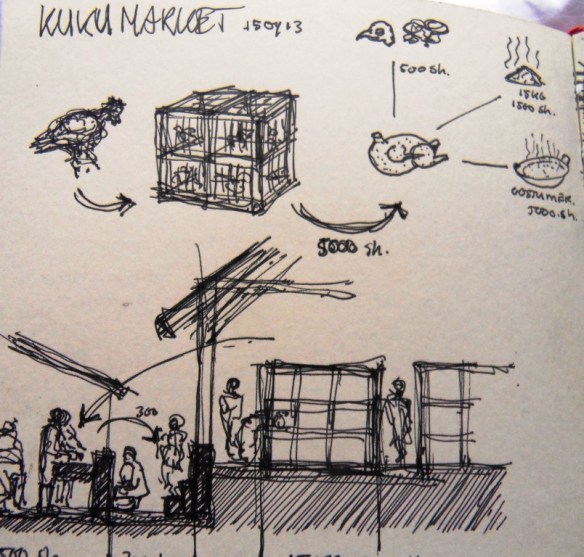 KUKU MARKET 150413
500 sh.
15KG
1500 sh.
COSTUMER.
5000 sh.
5000 sh.
300